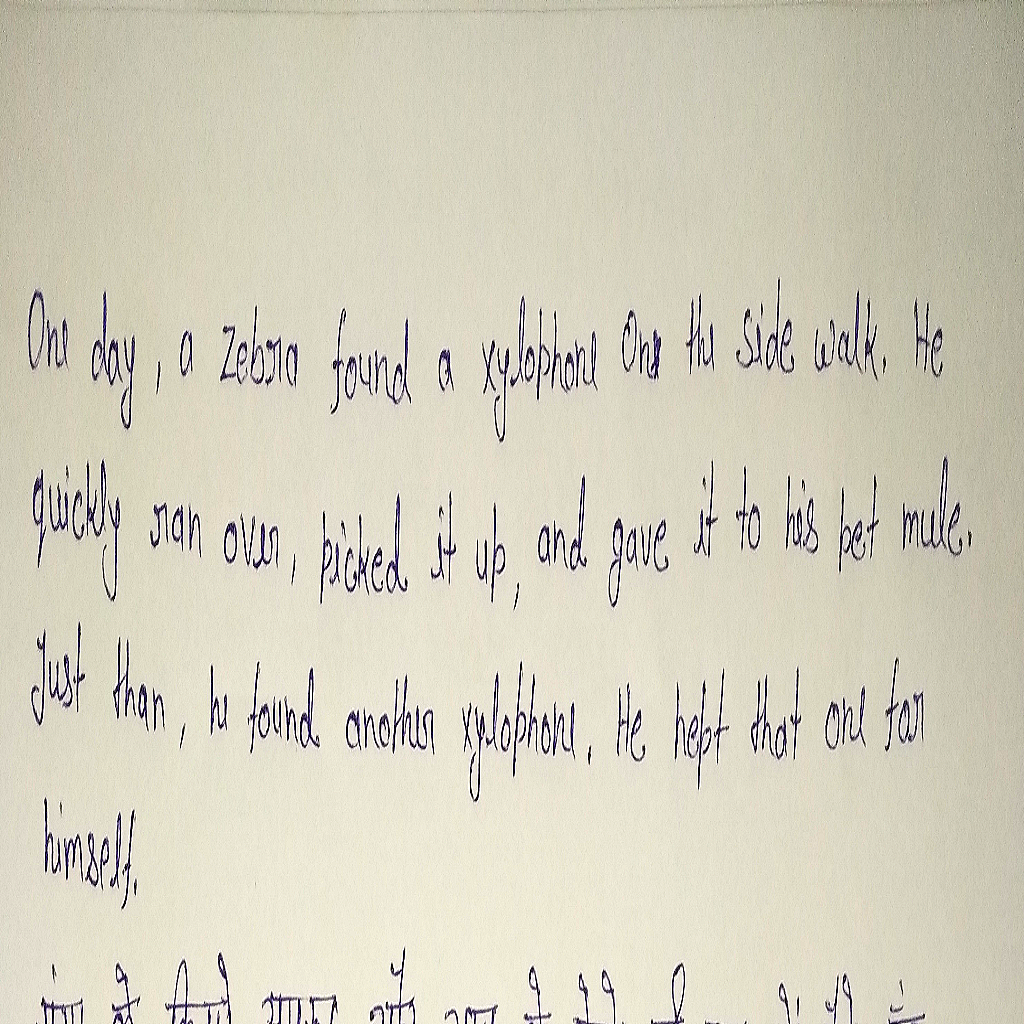 One day, a zebra found a xylophone One the side walk. He
quickly ran over, picked it up, and gave it to his pet mule.
Just than, he found another xylophone. He kept that one for
himself.